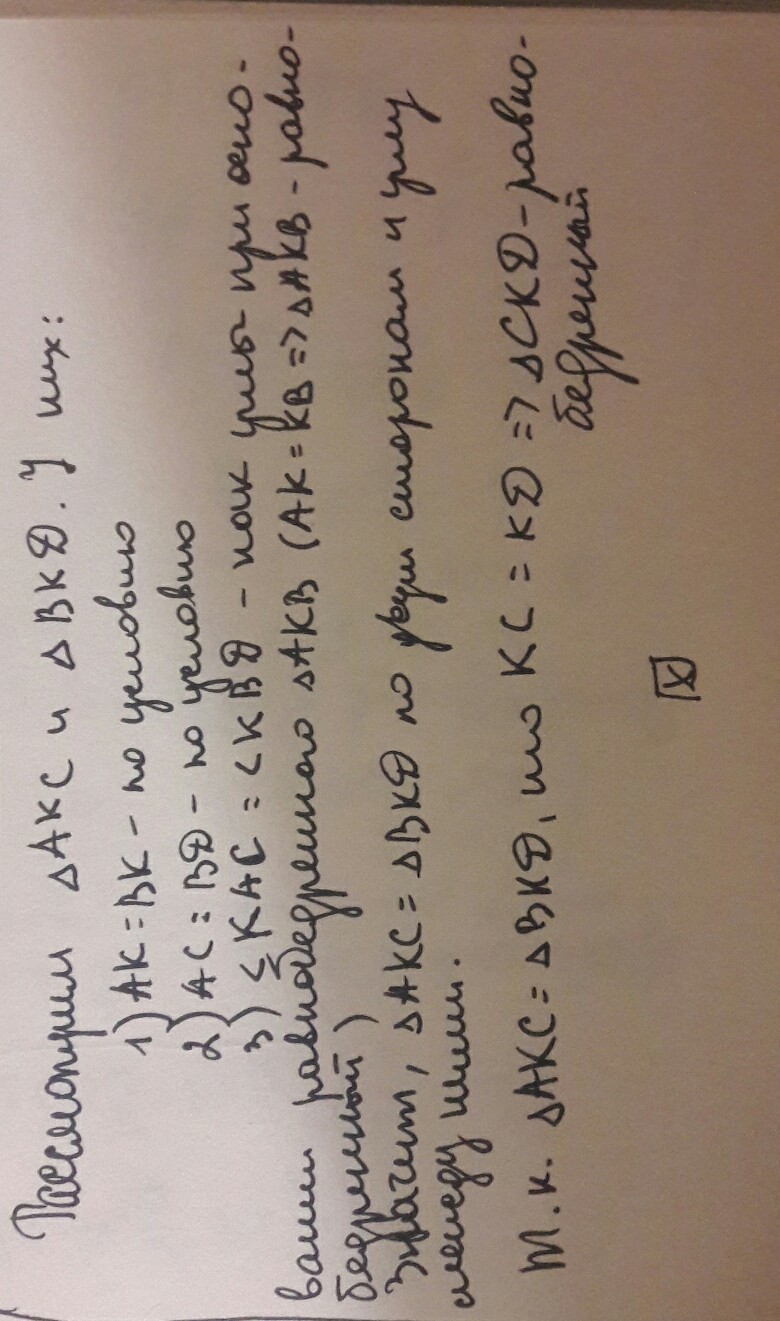 Рассмотрим ΔAKC и ΔBKD. У них:
1) AK = BK - по условию
2) AC = BD - по условию
3) ∠KAC = ∠KBD - как углы при осно-
вании равнобедренного ΔAKB (AK = KB => ΔAKB - равно-
бедренный)
Значит, ΔAKC = ΔBKD по двум сторонам и углу
между ними.
Т.к. ΔAKC = ΔBKD, то KC = KD => ΔCKD - равно-
бедренный